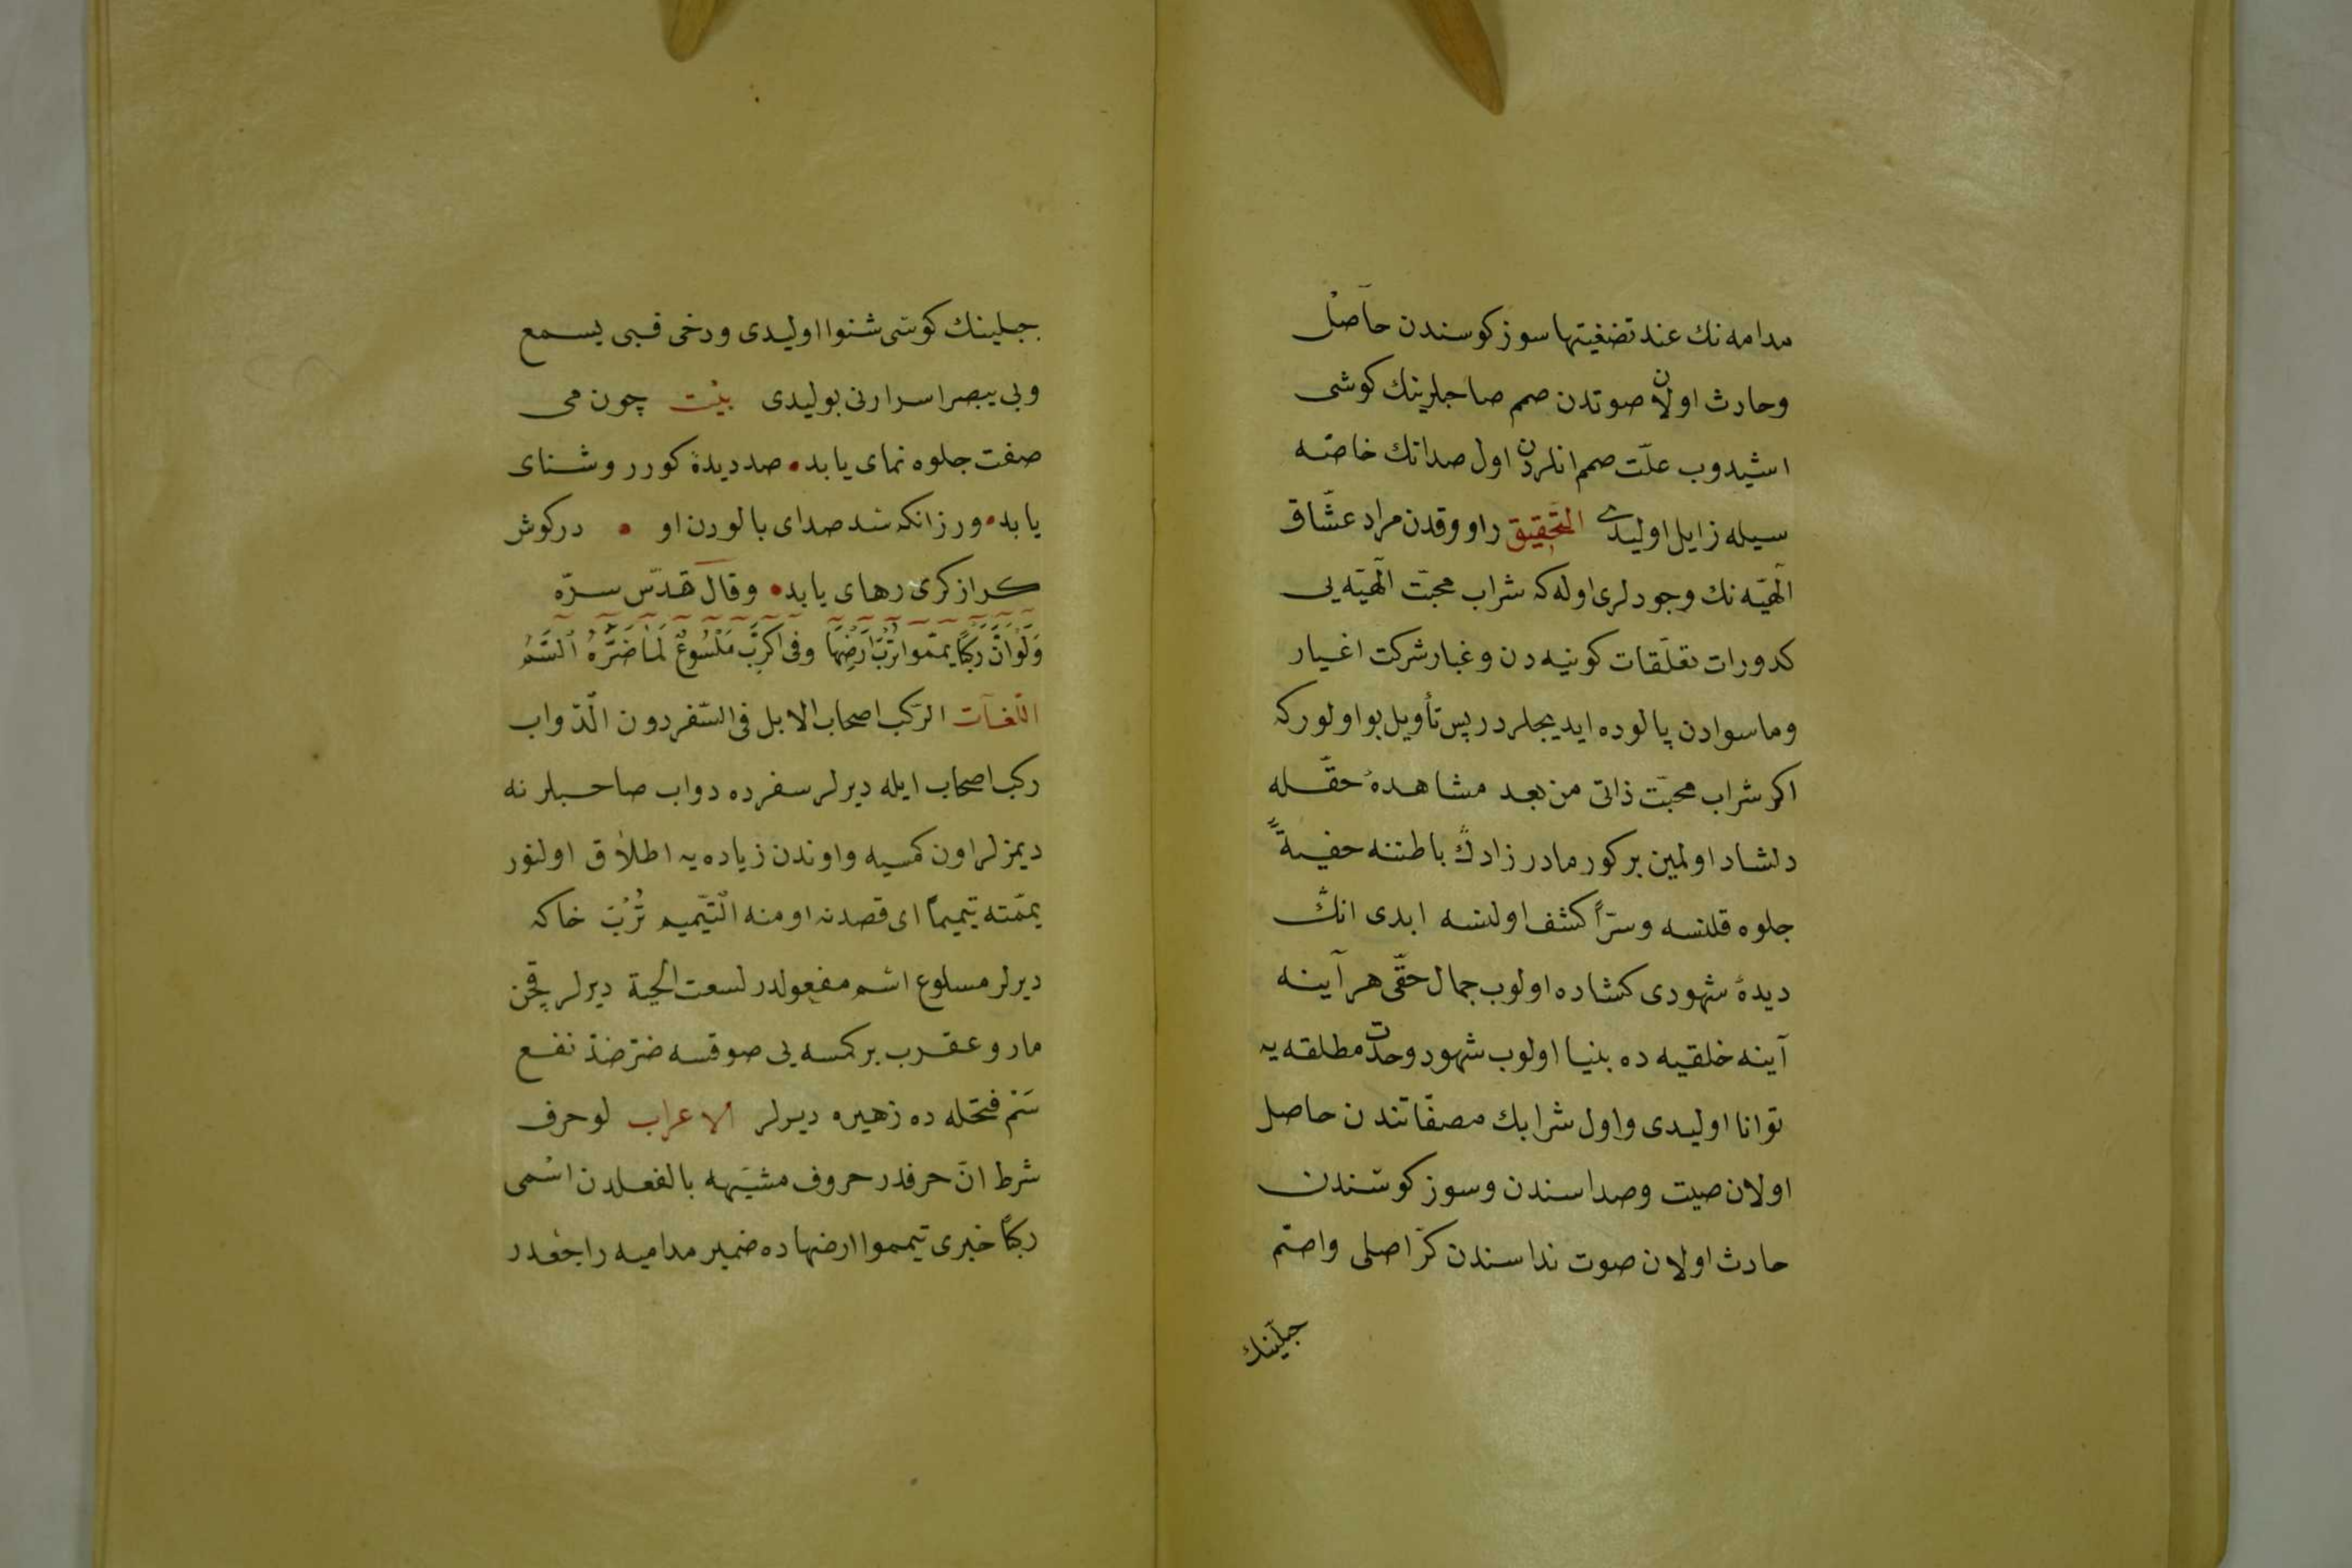 مدامه نك عند تضفيتها سوزكوسندن حاصل
وحادث اولان صوتدن صمم صاحبلرينك كوشى
اشيدوب علّت صمم انلردن اول صدانك خاصّه
سيله زايل اوليدى التحقيق راووقدن مراد عشّاق
الٓهيّه نك وجودلرى اوله كه شراب محبّت الٓهيّه يى
كدورات تعلّقات كونيه دن وغبار شركت اغيار
وماسوادن پالوده ايديجلردر پس تأويل بو اولوركه
اكر شراب محبّت ذاتى من بعد مشاهدهٔ حقّله
دلشاد اولمين بر كور مادرزادك باطننه خفيةً
جلوه قلنسه وسرّاً كشف اولنسه ابدى انك
ديدهٔ شهودى كشاده اولوب جمال حقّى هر آينه
آينه خلقيه ده بنيا اولوب شهود وحدت مطلقه يه
توانا اوليدى واول شرابك مصفّاتندن حاصل
اولان صيت وصداسندن وسوزكوسندن
حادث اولان صوت نداسندن كرّ اصلى واصمّ
جبلّينك
جبلينك كوشى شنوا اوليدى ودخى قبى يسمع
وبى يبصر اسرارنى بوليدى بيت چون مى
صفت جلوه نماى يابد • صد ديدهٔ كور روشناى
يابد • ورزانكه شد صداى بالودن او • دركوش
كر از كرى رهاى يابد • وقال قدّس سرّه
وَلَوْ اَنَّ رَكْبًا يمّموا تُرْبَ اَرْضِهَا وفى اكرَّكْبِ مَلْسُوعٌ لَمَا ضَرَّهُ السَّمُّ
اللّغات الرّكب اصحاب الابل فى السّفر دون الدّواب
ركب اصحاب ايله ديرلر سفرده دواب صاحبلرنه
ديمزلر اون كمسيه واوندن زياده يه اطلاق اولنور
يمّمته تيميماً اى قصدته ومنه التّيميم تُرْبْ خاكه
ديرلر مسلوع اسم مفعولدر لسعت الحية ديرلر قچن
مار وعقرب بر كمسه يى صوقسه ضرّ ضدّ نفع
سَم فتحله ده زهيره ديرلر الاعراب لو حرف
شرط انّ حرفدر حروف مشبّهه بالفعلدن اسمى
ركبًا خبرى تيمموا ارضهاده ضمير مداميه راجعدر